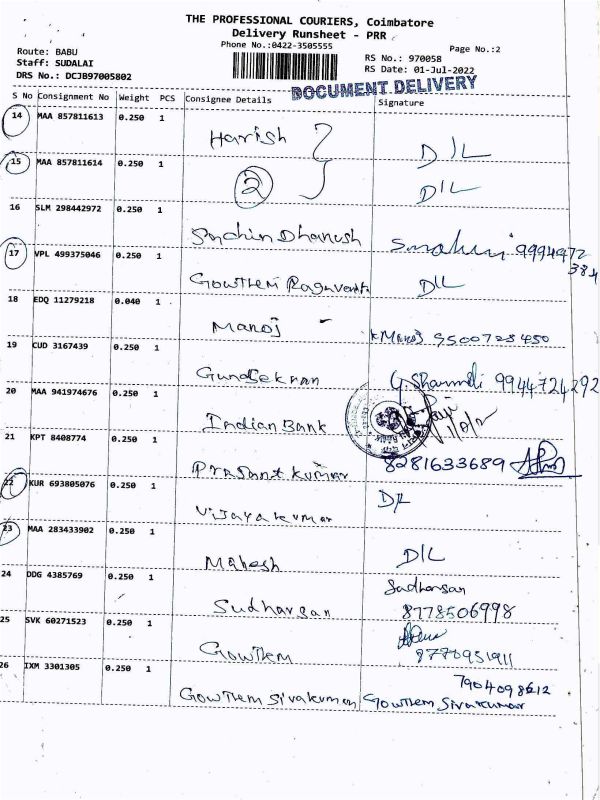 THE PROFESSIONAL COURIERS, Coimbatore
Delivery Runsheet - PRR
Phone No.:0422-3505555
Page No.:2
Route: BABU
Staff: SUDALAI
DRS No.: DCJB97005802
RS No.: 970058
RS Date: 01-Jul-2022
DOCUMENT DELIVERY
S No Consignment No Weight PCS Consignee Details Signature
14 MAA 857811613 0.250 1 Harish D/L
15 MAA 857811614 0.250 1 2 D/L
16 SLM 298442972 0.250 1 Sachin Dhanush 9994972384
17 VPL 499375046 0.250 1 Gowthem D/L
18 EDQ 11279218 0.040 1 Manoj - K Manoj 9500728450
19 CUD 3167439 0.250 1 Gunasekran 9944724292
20 MAA 941974676 0.250 1 Indian Bank
21 KPT 8408774 0.250 1 Prasant kumar 8281633689
22 KUR 693805076 0.250 1 Vijayakumar D/L
23 MAA 283433902 0.250 1 Mahesh D/L
24 DDG 4385769 0.250 1 Sudharsan Sudharsan 8778506998
25 SVK 60271523 0.250 1 Gowthem
26 IXM 3301305 0.250 1 Gowthem Sivakumar 7904098612 Gowthem Sivakumar